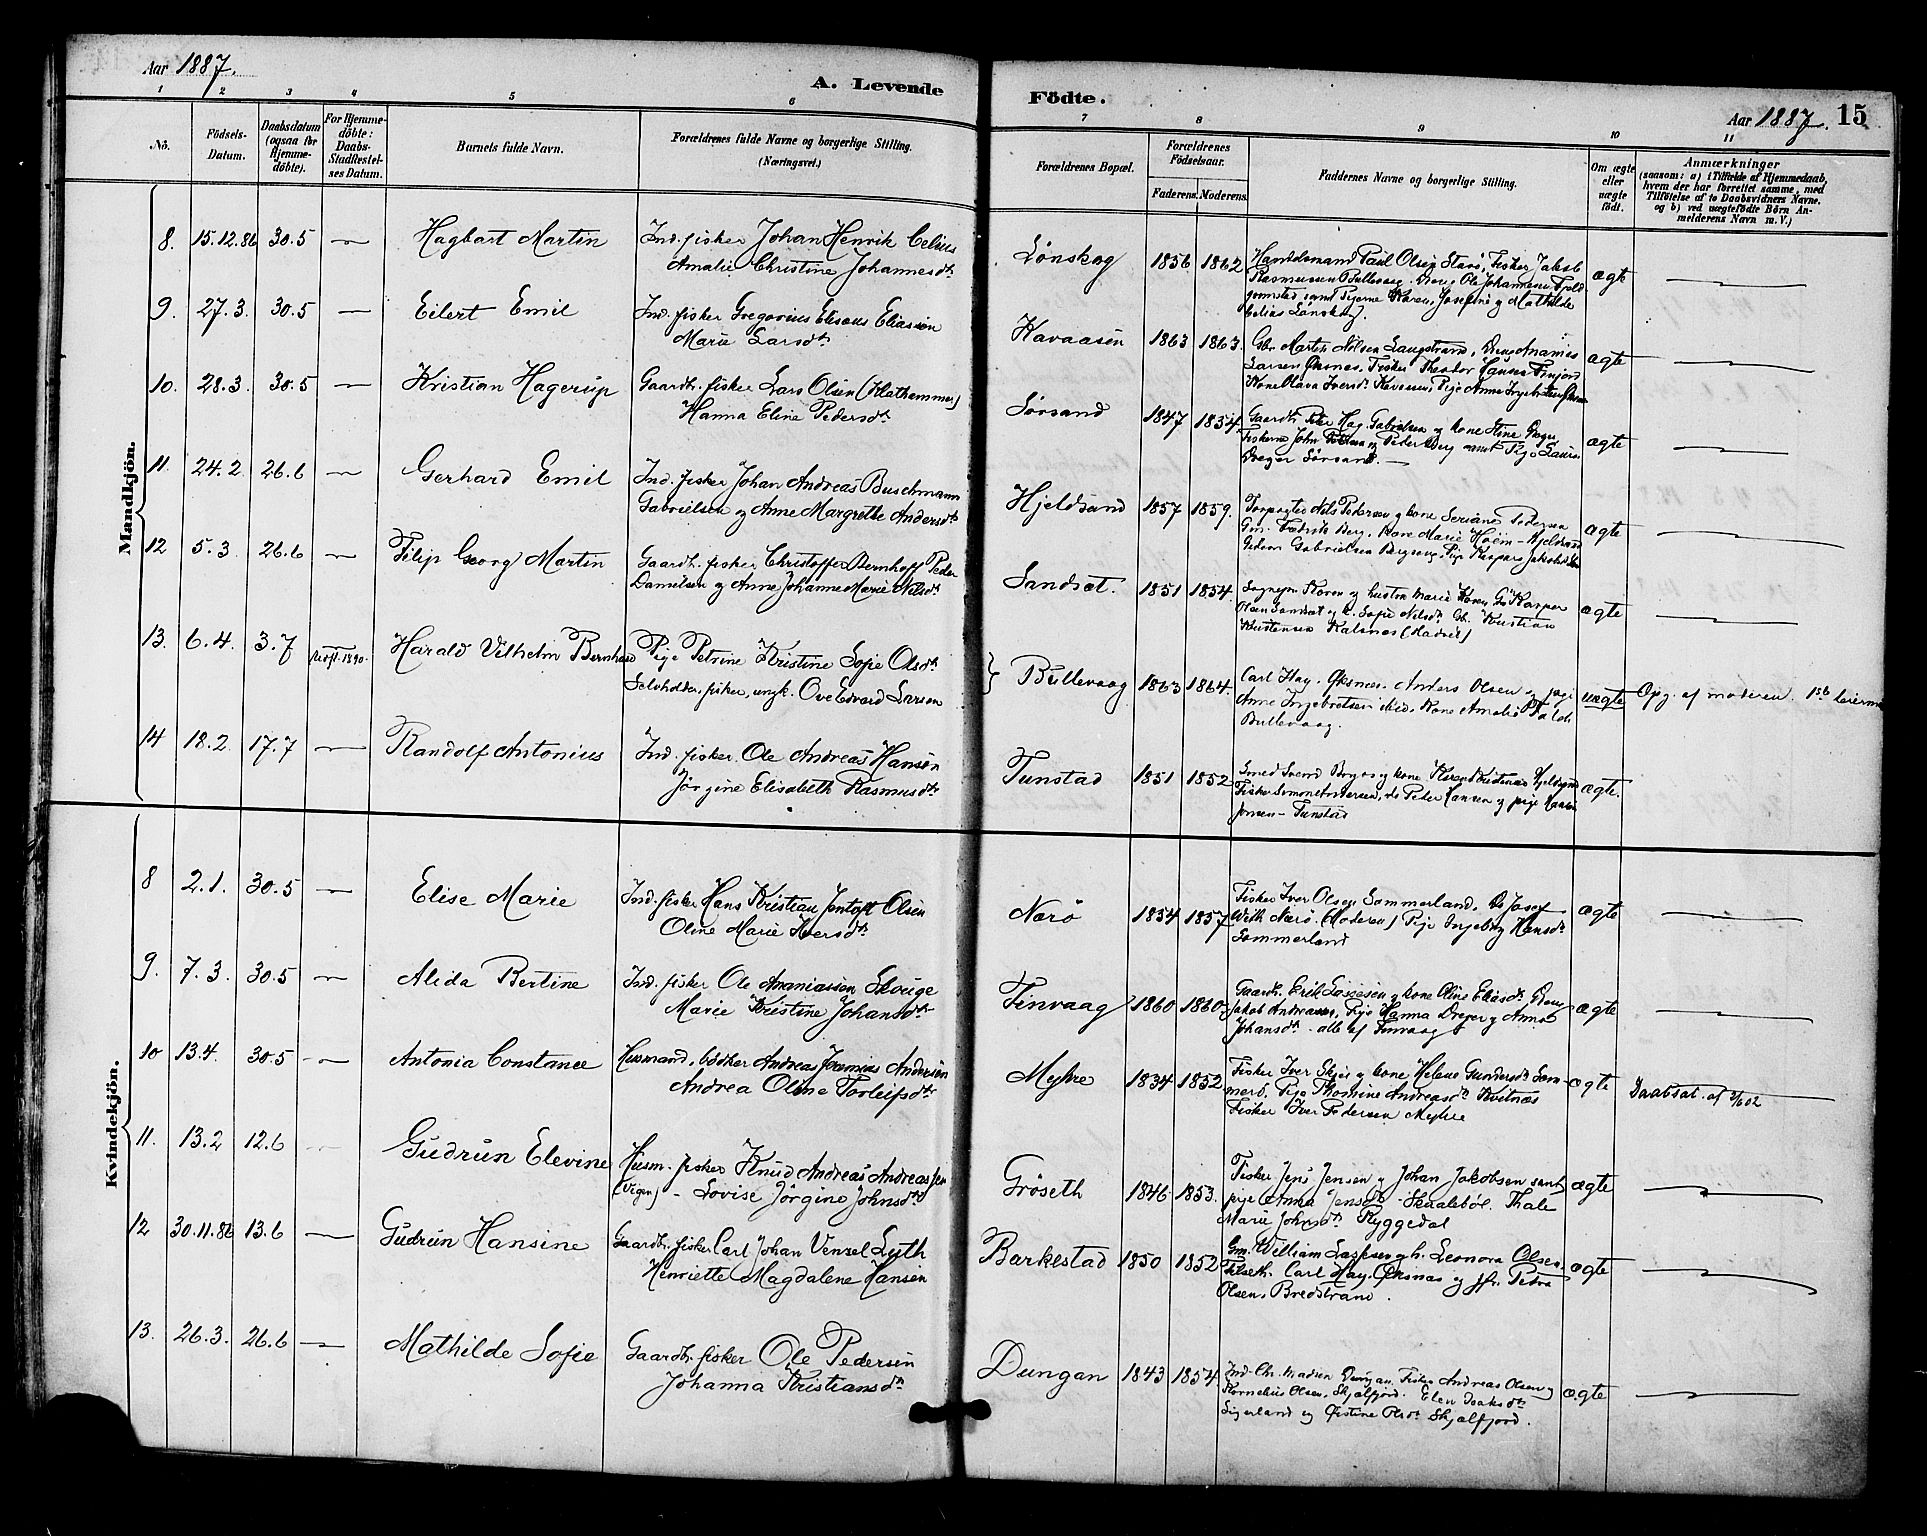 Aar 1887.
A. Levende
Födte.
Aar 1887. 15
1 2 3 4 5 6 7 8 9 10 11
Nô. Födsels-Datum. Daabsdatum (ogsaa for Hjemme-döbte). For Hjemme-döbte: Daabs-Stadfæstel-ses Datum. Barnets fulde Navn. Forældrenes fulde Navne og borgerlige Stilling. (Næringsvei.)
Forældrenes Bopæl. Forældrenes Födselsaar. Faderens. Moderens. Faddernes Navne og borgerlige Stilling. Om ægte eller uægte födt. Anmærkninger (saasom: a) i Tilfælde af Hjemmedaab, hvem der har forrettet samme, med Tilföielse af to Daabsvidners Navne. og b) ved uægtefödte Börn An-melderens Navn m. V.)
Mandkjön.
8. 15.12.86 30.5 — Hagbart Martin Ind. fisker Johan Henrik Celius
Amalie Christine Johannesdt.
Lönskog 1856 1862 Handelsmand Paul Olsen Starö, Fisker Jakob
Rasmussen Bullevaag. Ole Johannesen
samt Pigerne Karen, Josefine og Mathilde
Celius Lönskog. ægte —
9. 27.3. 30.5 — Eilert Emil Ind. fisker Gregorius Elisæus Eliassen
Marie Larsdt.
Kavaasen 1863 1863. Gbr. Martin Nilsen Langstrand, Dreng Ananias
Larsen Öksnes. Fisker Theodor Hansen Finfjord
Kone Olava Iversdt. Kavaasen, Pige Anne ægte —
10. 28.3. 30.5 — Kristian Hagerup Gaardb. fisker Lars Olsen (Klethammer)
Hanna Eline Pedersdt.
Sörsand 1847 1854. Gaardb. Peter Hag. Gabrielsen og kone Stine Dreyer
Fiskerne John og Peder Berg samt Pige Laura
Dreyer Sörsand. — ægte —
11. 24.2. 26.6 — Gerhard Emil Ind. fisker Johan Andreas Buschmann
Gabrielsen og Anne Margrethe Andersdt.
Hjeldsand 1857 1859. Nils Pedersen og kone Seriane Pedersen
Gm. Fredrik Berg, Kone Marie Höim - Hjeldsand
Gabrielsen Pige Kaspara ægte —
12 5.3. 26.6 — Filip Georg Martin Gaardb. fisker Christoffer Bernhoff Peder
Danielsen og Anne Johanne Marie Nilsdt.
Sandset. 1851 1854. Sognepr. Koren og hustru Marie Koren, Gb Kasper
Olsen Sandset og k. Sofie Nilsdt. Gb. Kristian
Kristensen Kalsnes (Madvik) ægte —
13. 6.4. 3.7 1890. Harald Vilhelm Bernhard Pige Petrine Kristine Sofie Olsdt.
Selvholder, fisker, ungk. Ove Edvard Larsen
Bullevaag 1863 1864. Carl Hag. Öksnes. Anders Olsen og pige
Anne Ingebretsen Kone Amalie
Bullevaag. uægte Opg. af moderen. 1ste leierm.
14 18.2. 17.7 — Randolf Antonius Ind. fisker. Ole Andreas Hansen
Jörgine Elisabeth Rasmusdt.
Tunstad 1851 1852 Smed Svend og kone Karen Kristensen Hjeldsand
Fisker Simon Andersen, do Peder Hansen og pige
Jensen - Tunstad ægte.
Kvindekjön.
8 2.1. 30.5 — Elise Marie Ind. fisker Hans Kristian Jentoft Olsen
Oline Marie Iversdt.
Nærö 1854 1857 Fisker Iver Olsen Sommerland. Do Josef
Nærö. (Moderen) Pige Ingeborg Hansdt.
Sommerland ægte —
9. 7.3. 30.5 — Alida Bertine Ind. fisker Ole Ananiassen Skorige
Marie Kristine Johansdt.
Finvaag 1860 1860. Gaardb. Erik og kone Oline Eliasdt. Dreng
Jakob Andreassen, Pige Hanna Dreyer og Anna
Johansdt. - alle af Finvaag ægte —
10 13.4. 30.5 — Antonia Constance Husmand, bödker Andreas Jeremias Andersen
Andrea Oline Torleifsdt.
Myhre 1834 1852. Fisker Iver og kone Helene Gundersdt. Som-
merö. Pige Thomine Andreasdt. Kvitnæs
Fisker Iver Pedersen Myhre ægte Daabsat. af 3/6 02
11. 13.2 12.6 — Gudrun Elevine Husm. fisker Knud Andreas Andreassen
(Vigen) - Lovise Jörgine Johnsdt.
Gröseth 1846 1853. Fisker Jens Jensen og Johan Jakobsen samt
pige Anna Jensdt. - Skaaleböl. Thale
Marie Johnsdt. Ryggedal ægte —
12 30.11.86 13.6 — Gudrun Hansine Gaardb. fisker Carl Johan Vensel Lyth
Henriette Magdalene Hansen
Barkestad 1850 1852 Gm. William og h. Leonora Olsen
Tilseth. Carl Hag. Öksnæs og jfr. Petra
Olsen, Bredstrand. ægte —
13. 26.3. 26.6 — Mathilde Sofie Gaardb. fisker Ole Pedersen
Johanna Kristiansdt.
Dungan 1843 1854 Ind. Chr. Madsen Dungan, Fisker Andreas Olsen og
Kornelius Olsen, Skjelfjord. Elen Isaksdt.
Sigerland og Öistine Olsdt. Skjelfjord. ægte —